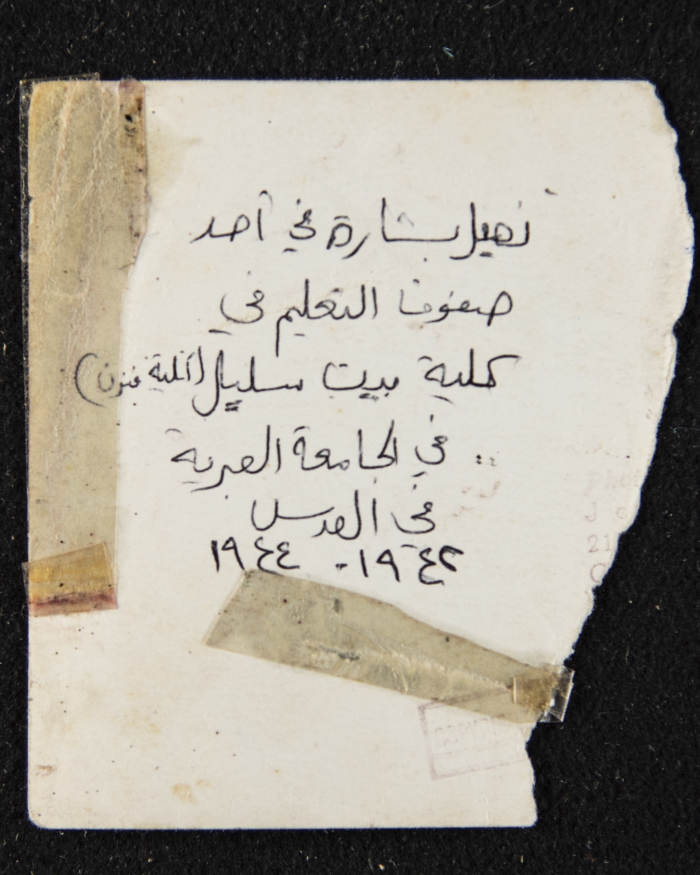 نهيل بشارة في أحد
صفوف التعليم في
كلية بيت سليل (كلية فنون)
.. في الجامعة العبرية
في القدس
١٩٤٢ - ١٩٤٤
Phot
J e
21